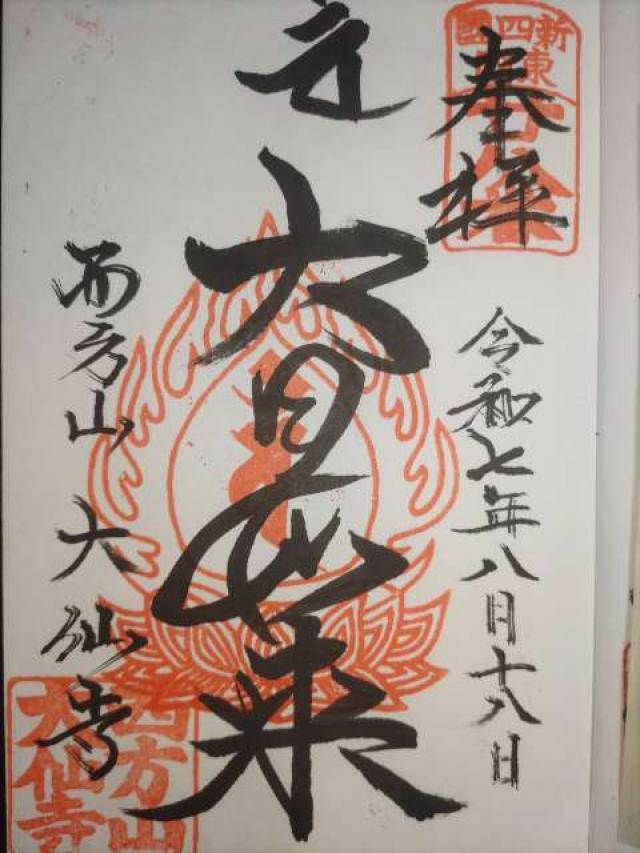 奉拝
令和七年八月十八日
大日如来
西方山 大仙寺
西方山
大仙寺